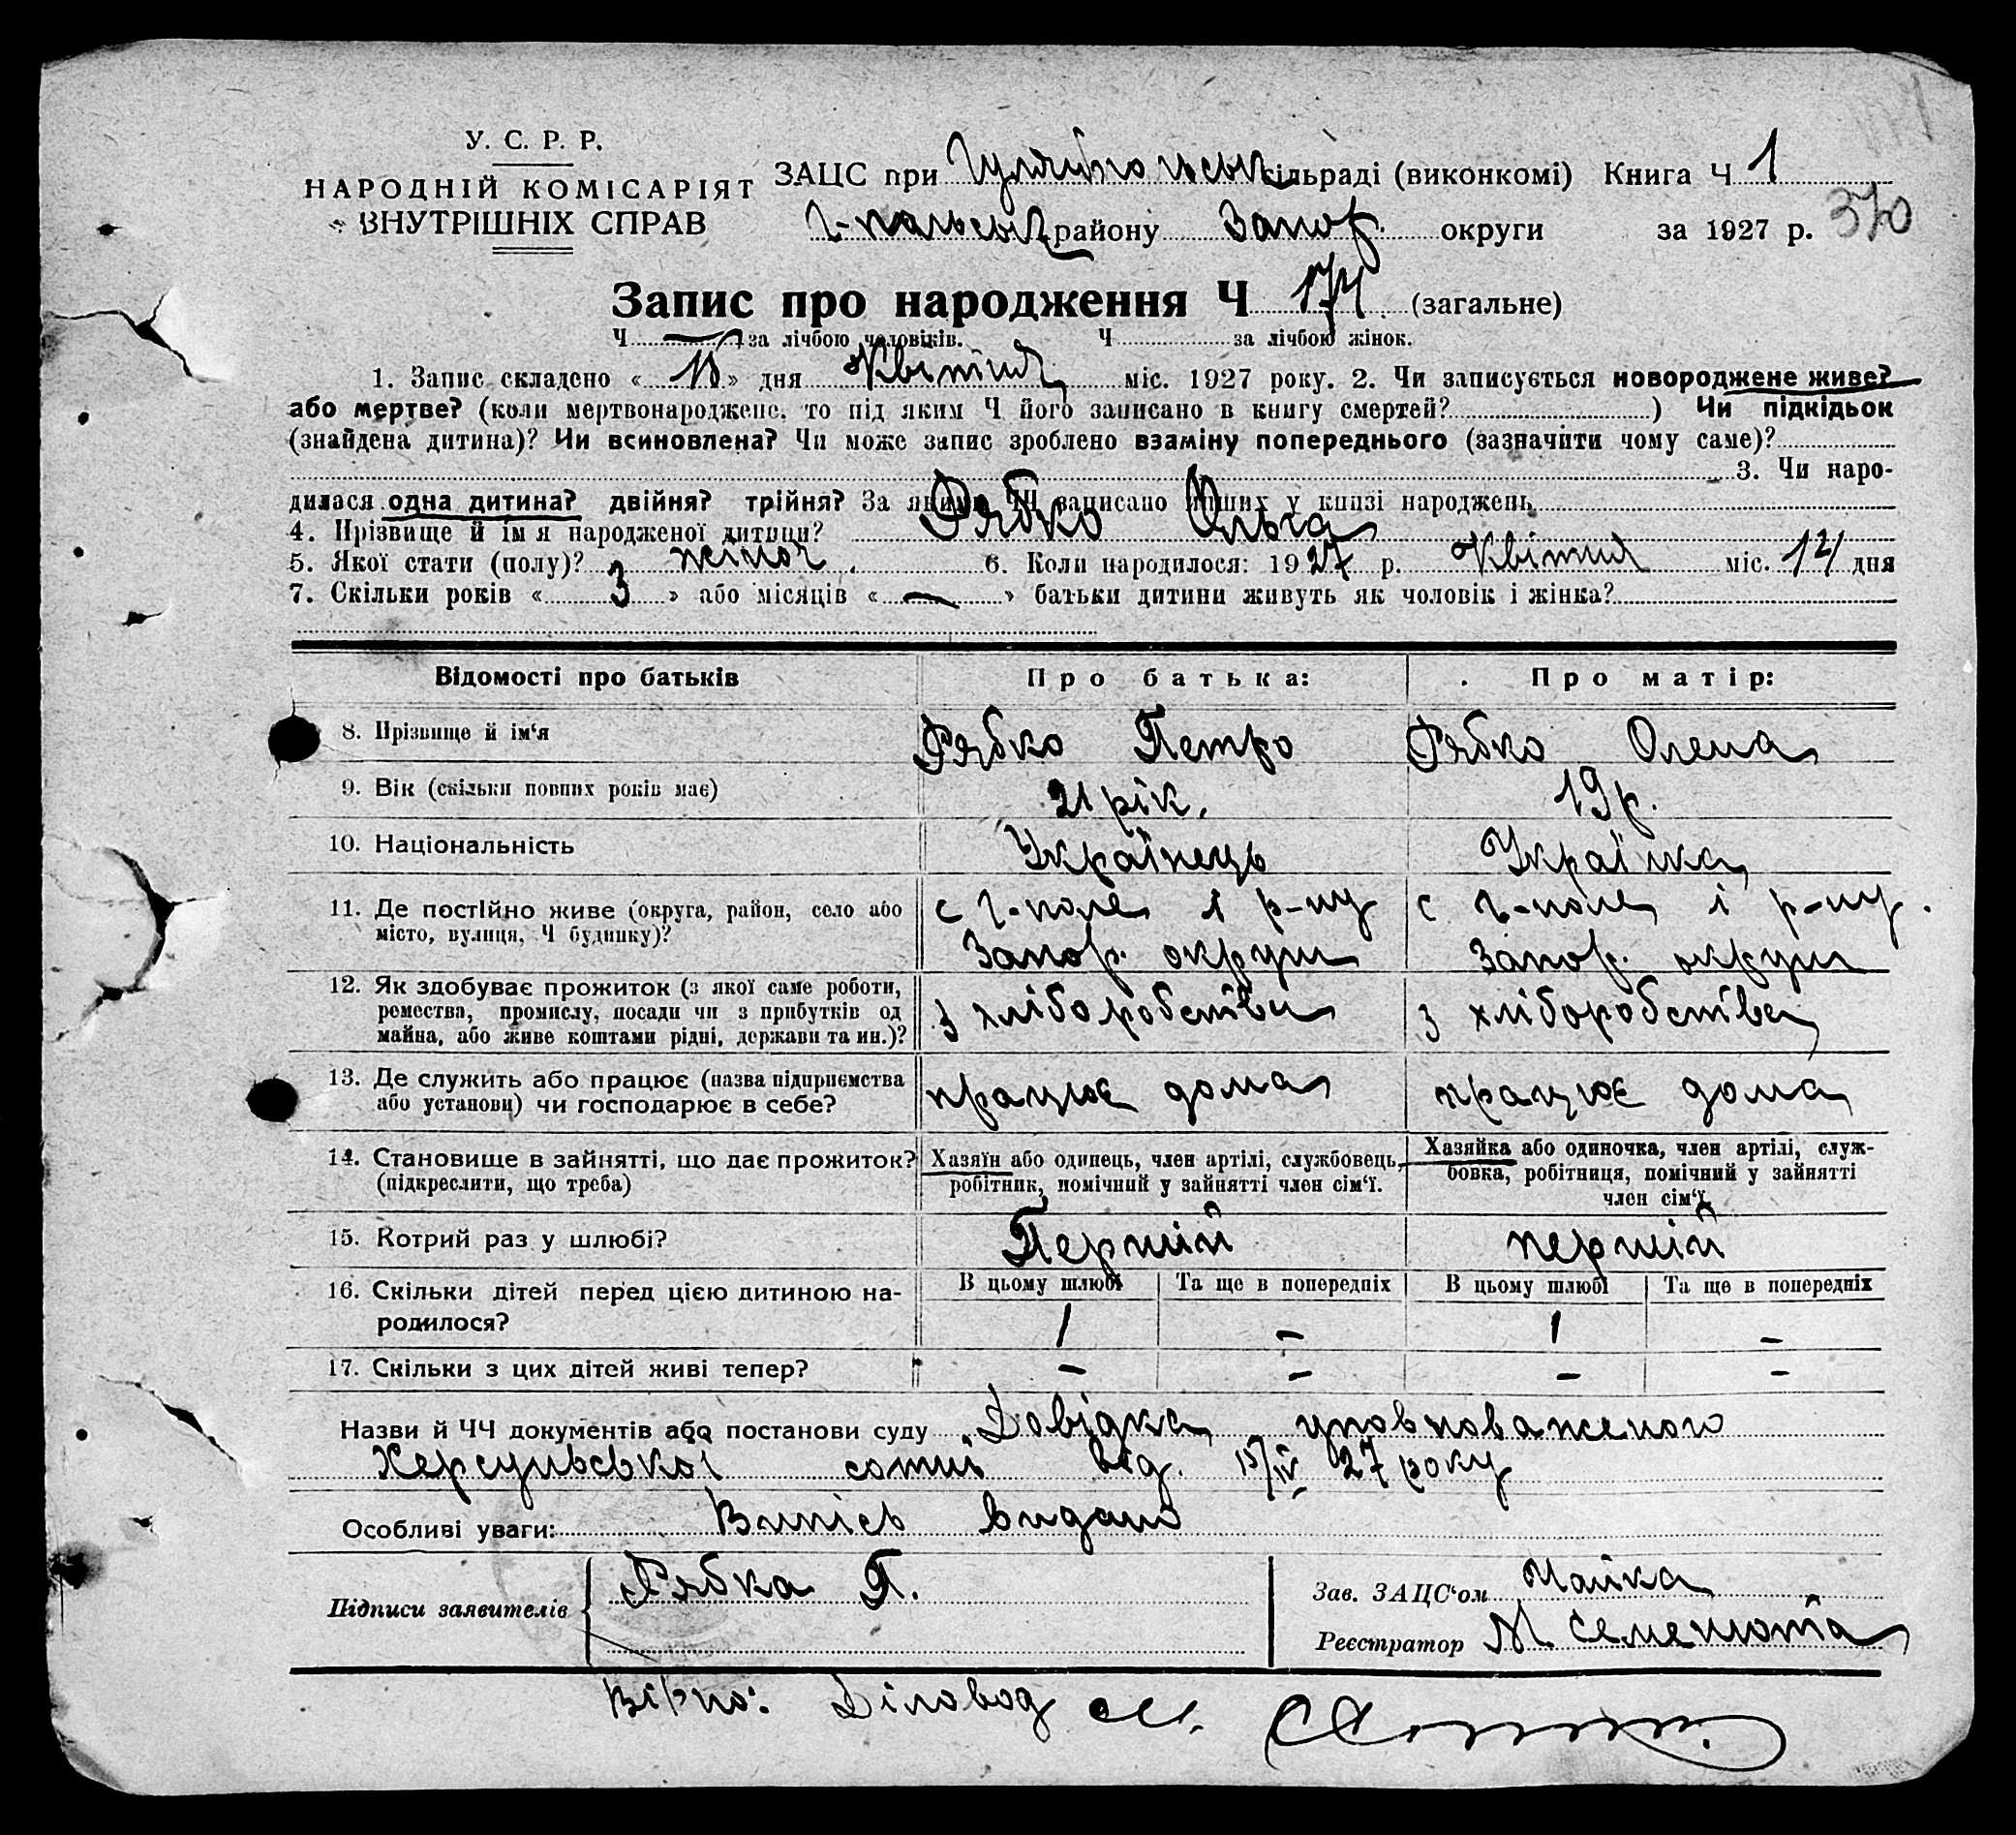 У. С. Р. Р.
НАРОДНІЙ КОМІСАРІЯТ
ВНУТРІШНІХ СПРАВ
ЗАЦС при Гуляйпольськ сільраді (виконкомі) Книга Ч 1
Г-польськ району Запор. округи за 1927 р. 370
Запис про народження Ч 174 (загальне)
Ч за лічбою чоловіків. Ч за лічбою жінок.
1. Запис складено « » дня Квітня міс. 1927 року. 2. Чи записується новороджене живе?
або мертве? (коли мертвонароджене, то під яким Ч його записано в книгу смертей? ) Чи підкідьок
(знайдена дитина)? Чи всиновлена? Чи може запис зроблено взаміну попереднього (зазначити чому саме)?
3. Чи наро-
дилася одна дитина? двійня? трійня? За якими ЧЧ записано инших у книзі народжень
4. Прізвище й ім'я народженої дитини? Рябко Ольга
5. Якої стати (полу)? жіноч. 6. Коли народилося: 1927 р. Квітня міс. 14 дня
7. Скільки років « 3 » або місяців « — » батьки дитини живуть як чоловік і жінка?
Відомості про батьків Про батька: Про матір:
8. Прізвище й ім'я Рябко Петро Рябко Олена
9. Вік (скільки повних років має) 21 рік. 19 р.
10. Національність Українець Українка
11. Де постійно живе (округа, район, село або с Г-поле і р-ну с Г-поле і р-ну.
місто, вулиця, Ч будинку)? Запор. округи Запор. округи
12. Як здобуває прожиток (з якої саме роботи,
ремества, промислу, посади чи з прибутків од з хліборобства з хліборобства
майна, або живе коштами рідні, держави та ин.)?
13. Де служить або працює (назва підприемства працює дома працює дома
або установи) чи господарює в себе?
14. Становище в зайнятті, що дає прожиток? Хазяїн або одинець, член артілі, службовець, Хазяйка або одиночка, член артілі, служ-
(підкреслити, що треба) робітник, помічний у зайнятті член сім'ї. бовка, робітниця, помічний у зайнятті
член сім'ї
15. Котрий раз у шлюбі? Перший перший
16. Скільки дітей перед цією дитиною на- В цьому шлюбі Та ще в попередніх В цьому шлюбі Та ще в попередніх
родилося? 1 – 1 –
17. Скільки з цих дітей живі тепер? – – – –
Назви й ЧЧ документів або постанови суду Довідка уповноваженого
Херсунської сотні від. 15/IV 27 року
Особливі уваги: Випісь видано
Підписи заявителів Рябка П.
Зав. ЗАЦС'ом
Реєстратор М Семенюта
Вірно: Діловод